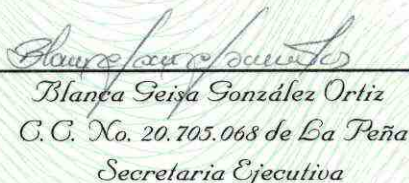 Blanca Geisa González Ortiz
C.C. No. 20.705.068 de La Peña
Secretaria Ejecutiva